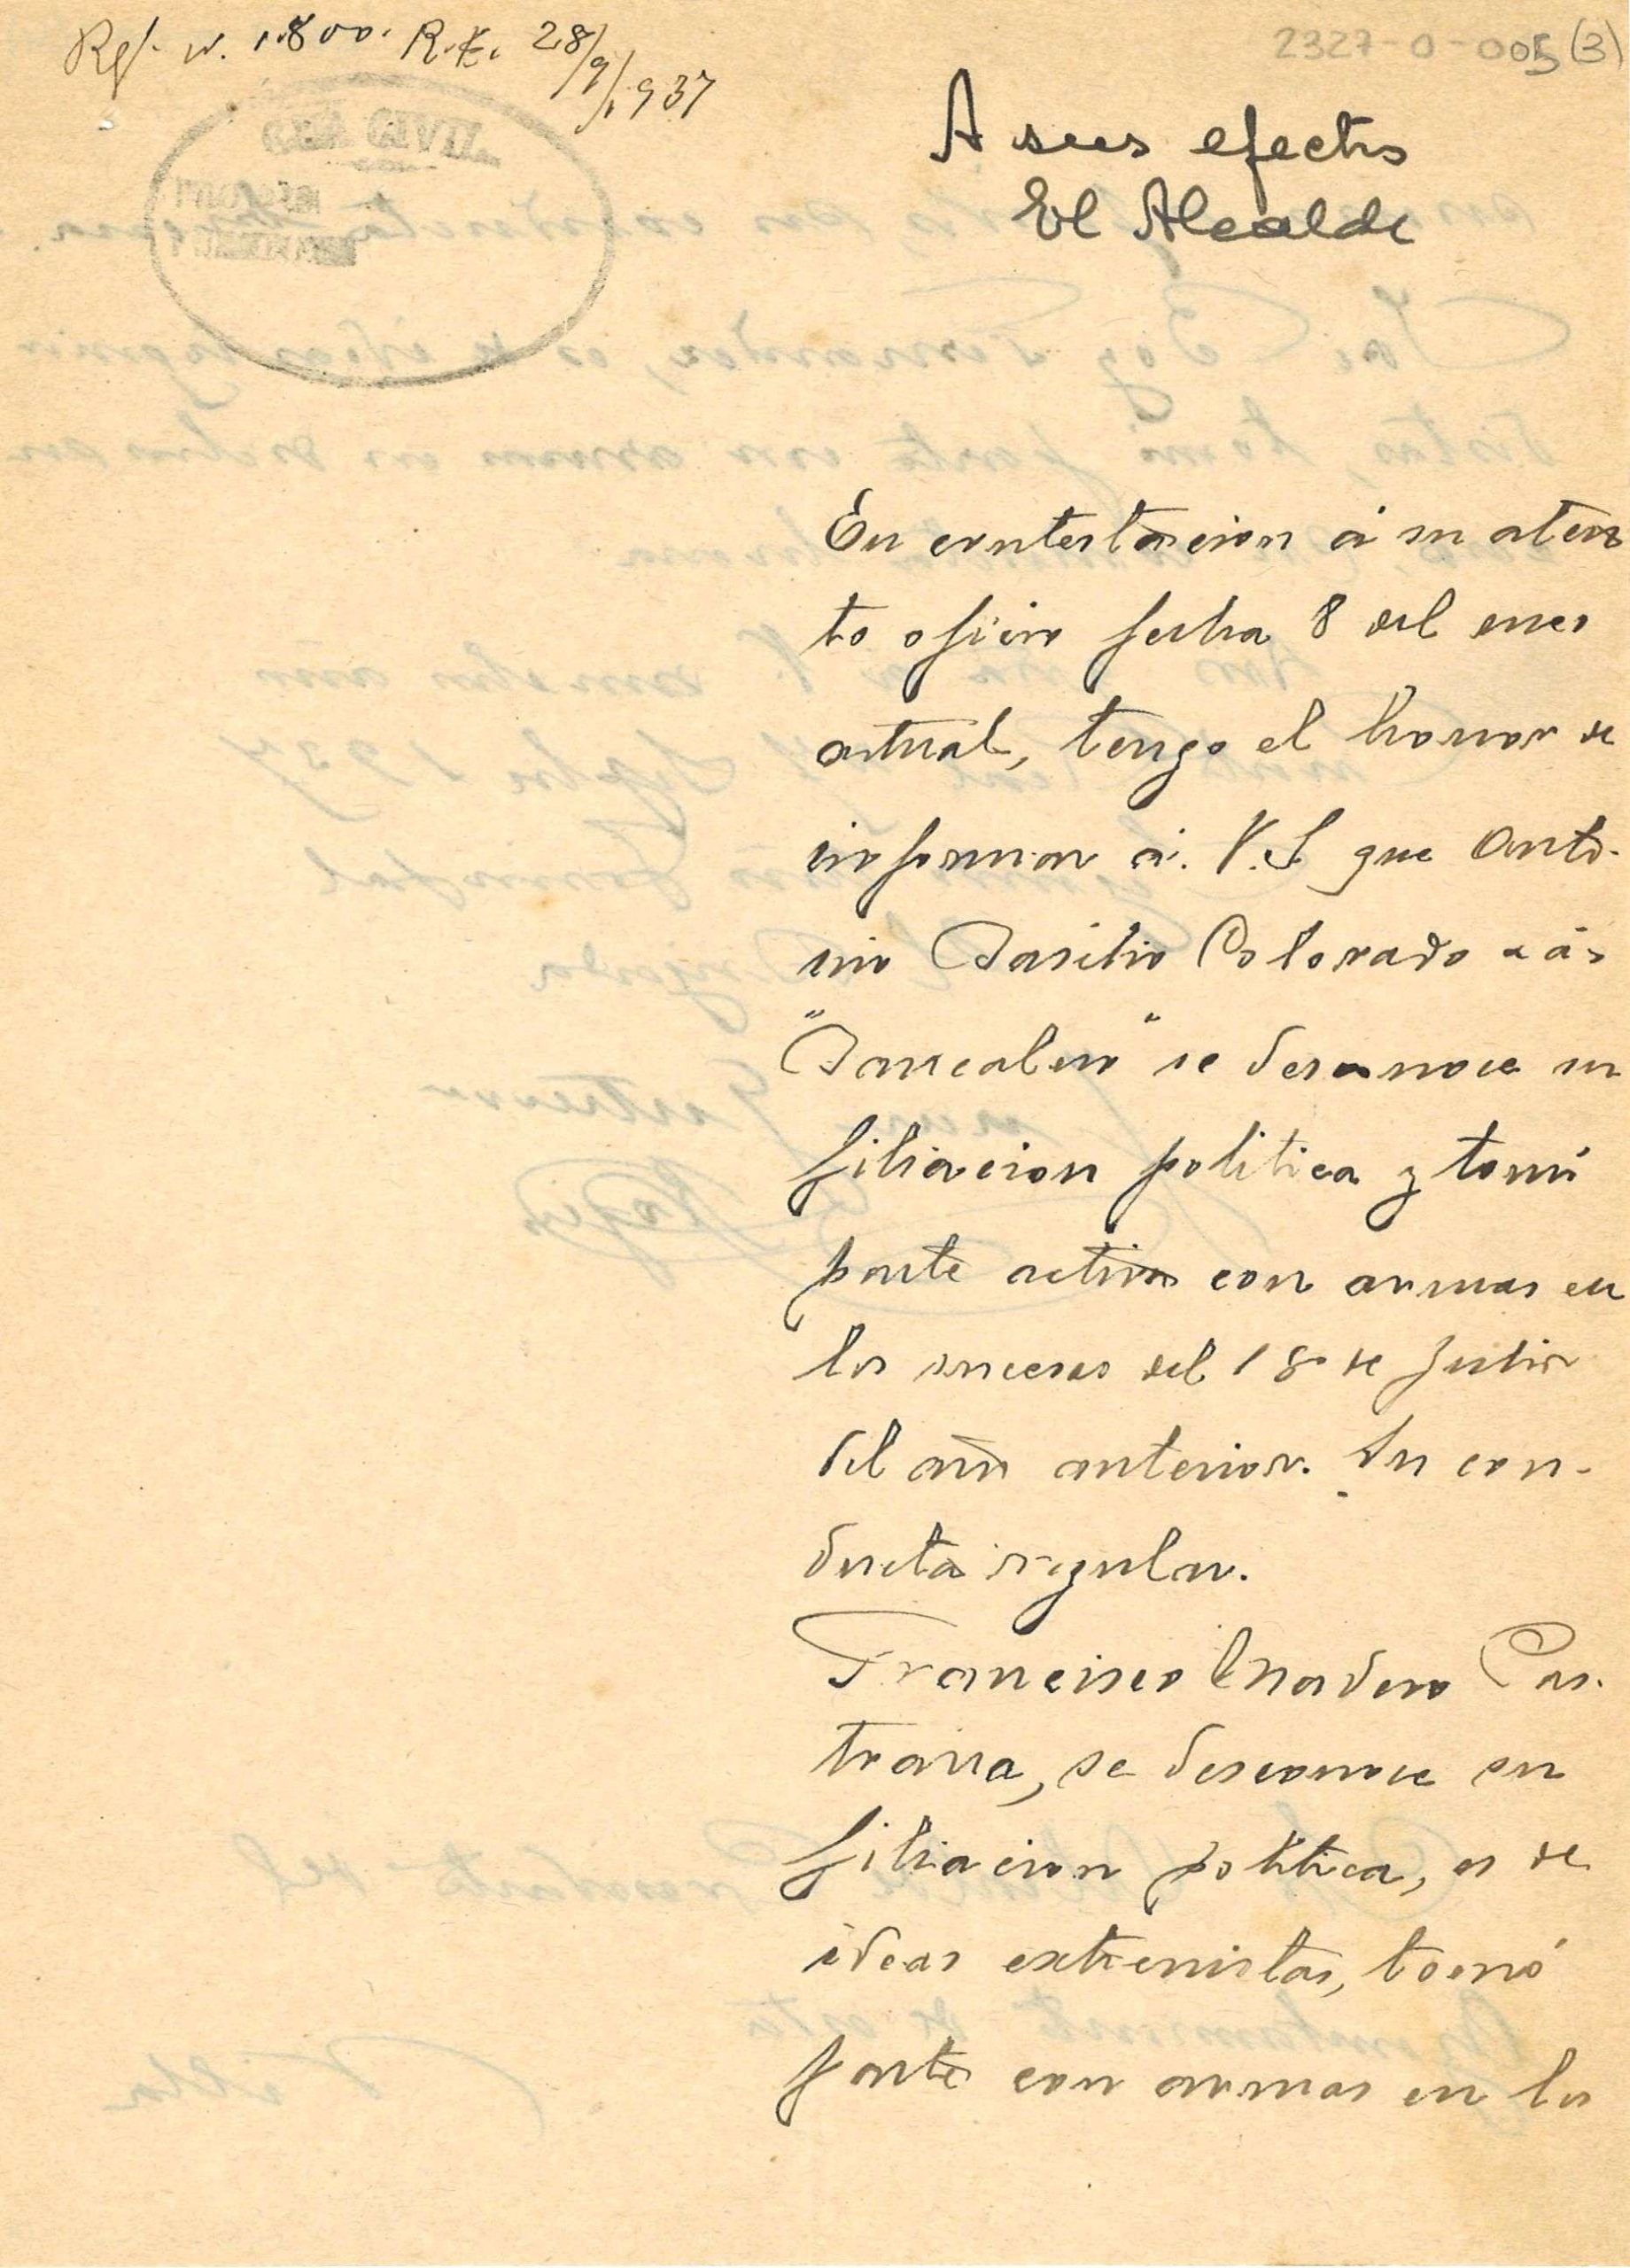 Ref. n. 1.800. R.E. 28/9/1937
2327-0-005(3)
A sus efectos
El Alcalde
CIVIL
En contestacion á su aten
to oficio fecha 8 del mes
actual, tengo el honor de
informar á. V.S que Anto-
nio Basilio Colorado a ás
" " se desconoce su
filiacion politica y tomó
parte activa con armas en
los sucesos del 18 de Julio
del año anterior. Su con-
ducta regular.
Francisco Madero Pas-
trana, se desconoce su
filiacion politica, es de
ideas extremistas, tomó
parte con armas en los